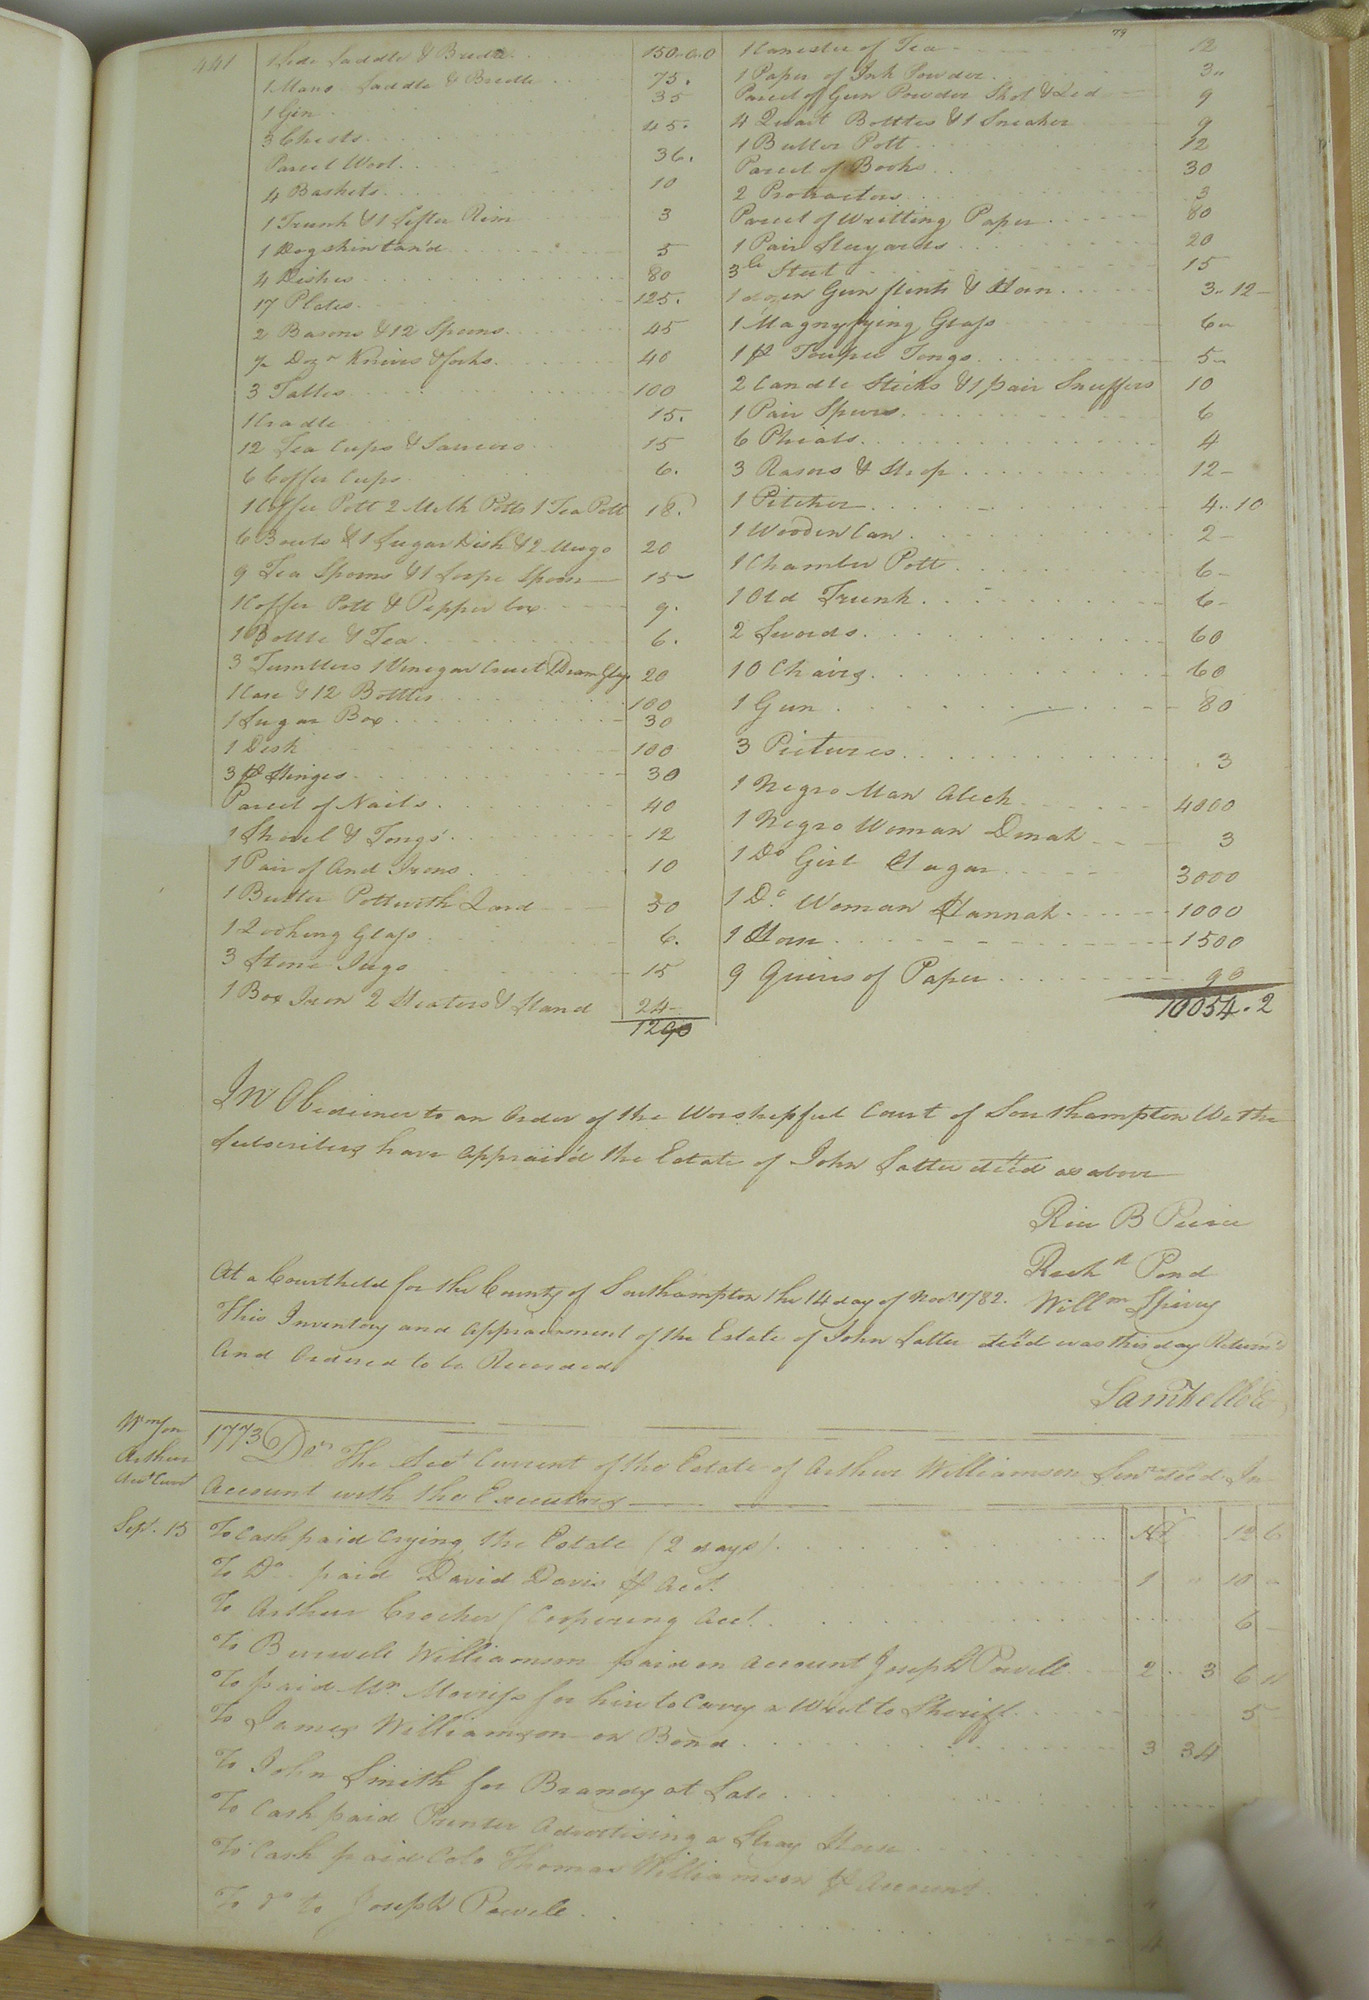 441
1 Side Saddle & Bridle 150.0.0
1 Mans Saddle & Bridle 75.
1 Gin 35
3 Chests 45.
Parcel Wool 36.
4 Baskets 10
1 Trunk & 1 Sifter Rim 3
1 Dogskin tan'd 5
4 Dishes 80
17 Plates 125.
2 Basons & 12 Spoons 45
½ Dozn Knives & forks 40
3 Tables 100
1 Cradle 15.
12 Tea Cups & Saucers 15
6 Coffee Cups 6.
1 Coffee Pott 2 Milk Potts 1 Tea Pott 18.
6 Bowls & 1 Sugar Dish & 2 Mugs 20
9 Tea Spoons & 1 Soope Spoon 15
1 Coffee Pott & Pepper box 9.
1 Bottle & Tea 6.
3 Tumblers 1 Vinegar Cruet 1 Dram Glass 20
1 Case & 12 Bottles 100
1 Sugar Box 30
1 Desk 100
3 pr Hinges 30
Parcel of Nails 40
1 Shovel & Tongs 12
1 Pair of And Irons 10
1 Butter Pott with Lard 30
1 Looking Glass 6.
3 Stone Jugs 15
1 Box Iron 2 Heaters & Stand 24
1290
79
1 Canester of Tea 12
1 Paper of Ink Powder 3"
Parcel of Gun Powder Shot & Led 9
4 Quart Bottles & 1 Sneaker 9
1 Butter Pott 12
Parcel of Books 30
2 Protractors 3
Parcel of Writting Paper 80
1 Pair Stilyards 20
3 lb Steel 15
1 dozen Gun flints & Horn 3..12
1 Magnyfying Glass 6
1 pr Toupee Tongs 5
2 Candle Sticks & 1 pair Snuffers 10
1 Pair Spurs 6
6 Phials 4
3 Rasors & Strop 12
1 Pitcher 4..10
1 Wooden Can 2
1 Chamber Pott 6
1 Old Trunk 6
2 Swords 60
10 Chairs 60
1 Gun 80
3 Pictures 3
1 Negro Man Aleck 4000
1 Negro Woman Dinah 3
1 Do Girl Hagar 3000
1 Do Woman Hannah 1000
1 Horse 1500
9 Quires of Paper 90
10054.2
In Obedience to an Order of the Worshipful Court of Southampton We the
Subscribers have appraised the Estate of John Salter decd as above
B
Richd Pond
Willm Spivey
At a Court held for the County of Southampton the 14 day of Novr 1782.
This Inventory and appraisement of the Estate of John Salter decd was this day Return'd
And Ordered to be Recorded
Saml Kello
Wmson
Arthur
Acct Curt
1773 Dr The Acct Current of the Estate of Arthur Williamson Senr decd In
Account with the Executors
Sept. 15 To Cash paid Crying the Estate (2 days) 12 6
To Do paid David Davis pr Acct 1 " 10 -
To Arthur Crocker Coopering Acct. 6
To Burwell Williamson paid on account Joseph Powell 2 3 6
To paid Mr. Morriss for hire to Carry a Writ to Sheriff 5
To James Williamson on Bond 3 34
To John Smith for Brandy at Sale
To Cash paid Printer Advertising a Stray Horse
To Cash paid Colo Thomas Williamson pr Account
To Do to Joseph Powell